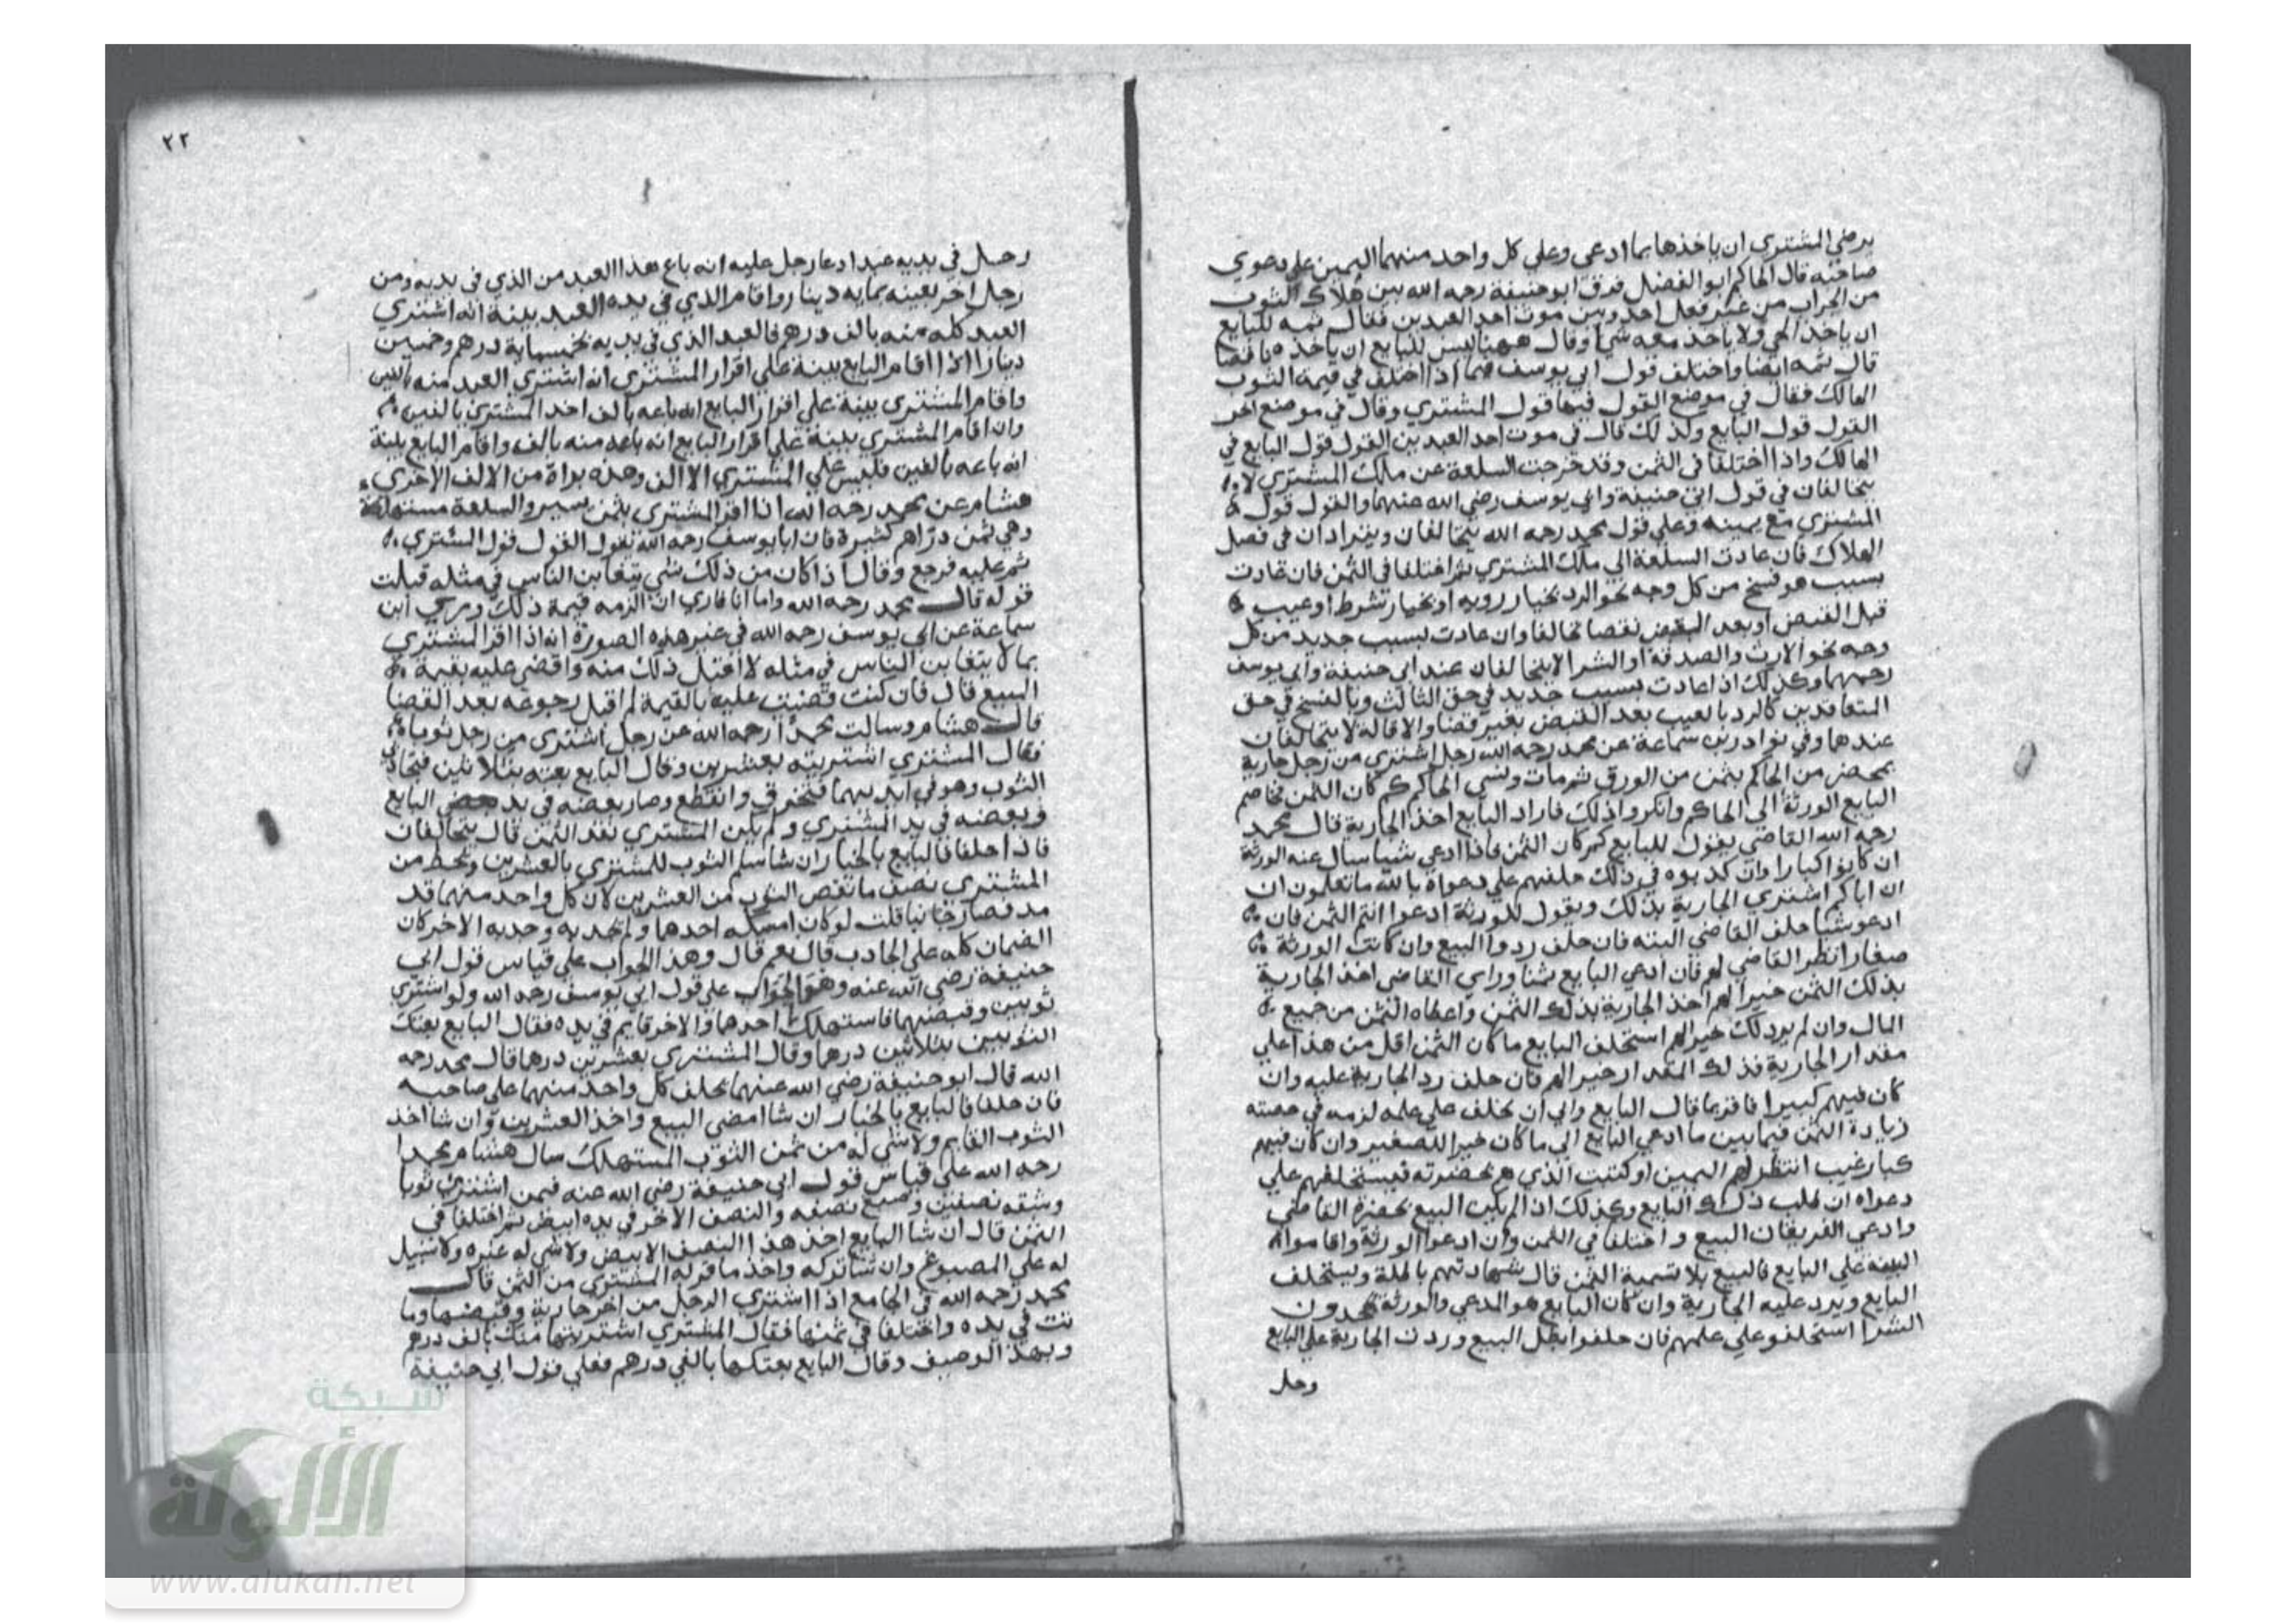 يرضي المشتري ان ياخذها بما ادعي وعلي كل واحد منهما اليمين علي دعوي
صاحبه قال الحاكم ابو الفضل فرق ابو حنيفة رحمه الله بين هلاك الثوب
من الجراب من غير فعل احد وبين موت احد العبدين فقال ثمه للبايع
ان ياخذ الحي ولا ياخذ معه شيا وقال ههنا ليس للبايع ان ياخذه ناقصا
قال ثمه ايضا واختلف قول ابي يوسف فيما اذا اختلف في قيمة الثوب
الهالك فقال في موضع القول فيها قول المشتري وقال في موضع اخر
القول قول البايع ولذلك قال في موت احد العبدين القول قول البايع في
الهالك واذا اختلفا في الثمن وقد خرجت السلعة عن ملك المشتري لا
يتحالفان في قول ابي حنيفة وابي يوسف رضي الله عنهما والقول قول
المشتري مع يمينه وعلي قول محمد رحمه الله يتحالفان ويترادان في فصل
الهلاك فان عادت السلعة الي ملك المشتري ثم اختلفا في الثمن فان عادت
بسبب هو فسخ من كل وجه نحو الرد بخيار رويه او بخيار شرط او عيب
قبل القبض او بعد القبض بقضا تحالفا وان عادت بسبب جديد من كل
وجه نحو الارث والصدقة او الشرا لا يتحالفان عند ابي حنيفة وابي يوسف
رحمهما وكذلك اذا عادت بسبب جديد في حق الثالث وبالفسخ في حق
المتعاقدين كالرد بالعيب بعد القبض بغير قضا والاقالة لا يتحالفان
عندهما وفي نوادر بن سماعة عن محمد رحمه الله رجل اشتري من رجل جارية
بمحضر من الحاكم بثمن من الورق ثم مات ونسي الحاكم كم كان الثمن فخاصم
البايع الورثة الي الحاكم وانكروا ذلك فاراد البايع اخذ الجارية قال محمد
رحمه الله القاضي يقول للبايع كم كان الثمن فاذا ادعي شيا سال عنه الورثة
ان كانوا كبارا وان كذبوه في ذلك حلفهم علي دعواه بالله ما تعلمون ان
ان اباكم اشتري الجارية بذلك ويقول للورثة ادعوا انتم الثمن فان
ادعو شيا حلف القاضي البته فان حلف ردوا البيع وان كانت الورثة
صغارا نظر القاضي لهم فان ادعي البايع ثمنا وراي القاضي اخذ الجارية
بذلك الثمن خيرا لهم اخذ الجارية بذلك الثمن واعطاه الثمن من جميع
المال وان لم ير ذلك خيرا لهم استحلف البايع ما كان الثمن اقل من هذا علي
مقدار الجارية فذلك المقدار خيرا لهم فان حلف رد الجارية عليه وان
كان فيهم كبيرا فاقر بما قال البايع وابي ان يحلف علي علمه لزمه في حصته
زيادة الثمن فيما بين ما ادعي البايع الي ما كان خيرا للصغير وان كان فيهم
كبار غيب انتظر لهم اليمين او كتبت الذي هم بحضرته فيستحلفهم علي
دعواه ان طلب ذلك البايع وكذلك اذا لم يكن البيع بحضرة القاضي
وادعي الفريقان البيع واختلفا في الثمن وان ادعوا الورثة واقاموا
البينه علي البايع فالبيع بلا تسمية الثمن قال شهادتهم باطلة ويستحلف
البايع ويرد عليه الجارية وان كان البايع هو المدعي والورثة يجحدون
الشرا استحلفو علي علمهم فان حلفوا بطل البيع وردت الجارية علي البايع
رجل
٢٢
رجل في يديه عبد ادعا رجل عليه انه باع هذا العبد من الذي في يديه ومن
رجل اخر بعينه بمايه دينار واقام الذي في يده العبد بينة انه اشتري
العبد كله منه بالف درهم فالعبد الذي في يديه بخمسماية درهم وخمسين
دينارا اذا اقام البايع بينة علي اقرار المشتري انه اشتري العبد منه بالفين
واقام المشتري بينة علي اقرار البايع انه باعه بالف اخذ المشتري بالفين
وان اقام المشتري بينة علي اقرار البايع انه باعه منه بالف واقام البايع بينة
انه باعه بالفين فليس علي المشتري الا الف وهذه براة من الالف الاخري
هشام عن محمد رحمه الله اذا اقر المشتري بثمن يسير والسلعة مستهلكة
وهي ثمن دراهم كثيرة فان ابا يوسف رحمه الله يقول القول قول المشتري
ثم عليه فرجع وقال اذا كان من ذلك شي يتغابن الناس في مثله قبلت
قوله قال محمد رحمه الله واما انا فاري ان الزمه قيمة ذلك وروي ابن
سماعة عن ابي يوسف رحمه الله في غير هذه الصورة انه اذا اقر المشتري
بما لا يتغابن الناس في مثله لا اقبل ذلك منه واقضي عليه بقيمة
البيع قال فان كنت قضيت عليه بالقيمة لم اقبل رجوعه بعد القضا
قال هشام وسالت محمدا رحمه الله عن رجل اشتري من رجل ثوبا
فقال المشتري اشتريته بعشرين وقال البايع بعته بثلاثين فتجاذبا
الثوب وهو في ايديهما فتخرق وانقطع وصار بعضه في يد البايع
وبعضه في يد المشتري ولم يكن المشتري نقد الثمن قال يتحالفان
فاذا حلفا فالبايع بالخيار ان شا سلم الثوب للمشتري بالعشرين ويحط من
المشتري نصف ما نقص الثوب من العشرين لان كل واحد منهما قد
مد فصار جانيا قلت لو كان امسكه احدهما ولم يجذبه وجذبه الاخر كان
الضمان كله علي الجاذب قال نعم قال وهذا الجواب علي قياس قول ابي
حنيفة رضي الله عنه وهو الجواب علي قول ابي يوسف رحمه الله ولو اشتري
ثوبين وقبضهما فاستهلك احدهما والاخر قايم في يده فقال البايع بعتك
الثوبين بثلاثين درهما وقال المشتري بعشرين درهما قال محمد رحمه
الله قال ابو حنيفة رضي الله عنهما يحلف كل واحد منهما علي صاحبه
فان حلفا فالبايع بالخيار ان شا امضي البيع واخذ العشرين وان شا اخذ
الثوب القايم ولا شي له من ثمن الثوب المستهلك سال هشام محمدا
رحمه الله علي قياس قول ابي حنيفة رضي الله عنه فيمن اشتري ثوبا
وشقه نصفين وصبغ نصفه والنصف الاخر في يده ابيض ثم اختلفا في
الثمن قال ان شا البايع اخذ هذا النصف الابيض ولا شي له غيره ولا سبيل
له علي المصبوغ وان شا تركه واخذ ما اقر له المشتري من الثمن قال
محمد رحمه الله في الجامع اذا اشتري الرجل من اخر جارية وقبضها وما
تت في يده واختلفا في ثمنها فقال المشتري اشتريتها منك بالف درهم
وبهذا الوصيف وقال البايع بعتكها بالفي درهم فعلي قول ابي حنيفة
شبكة
الألوكة
www.alukah.net